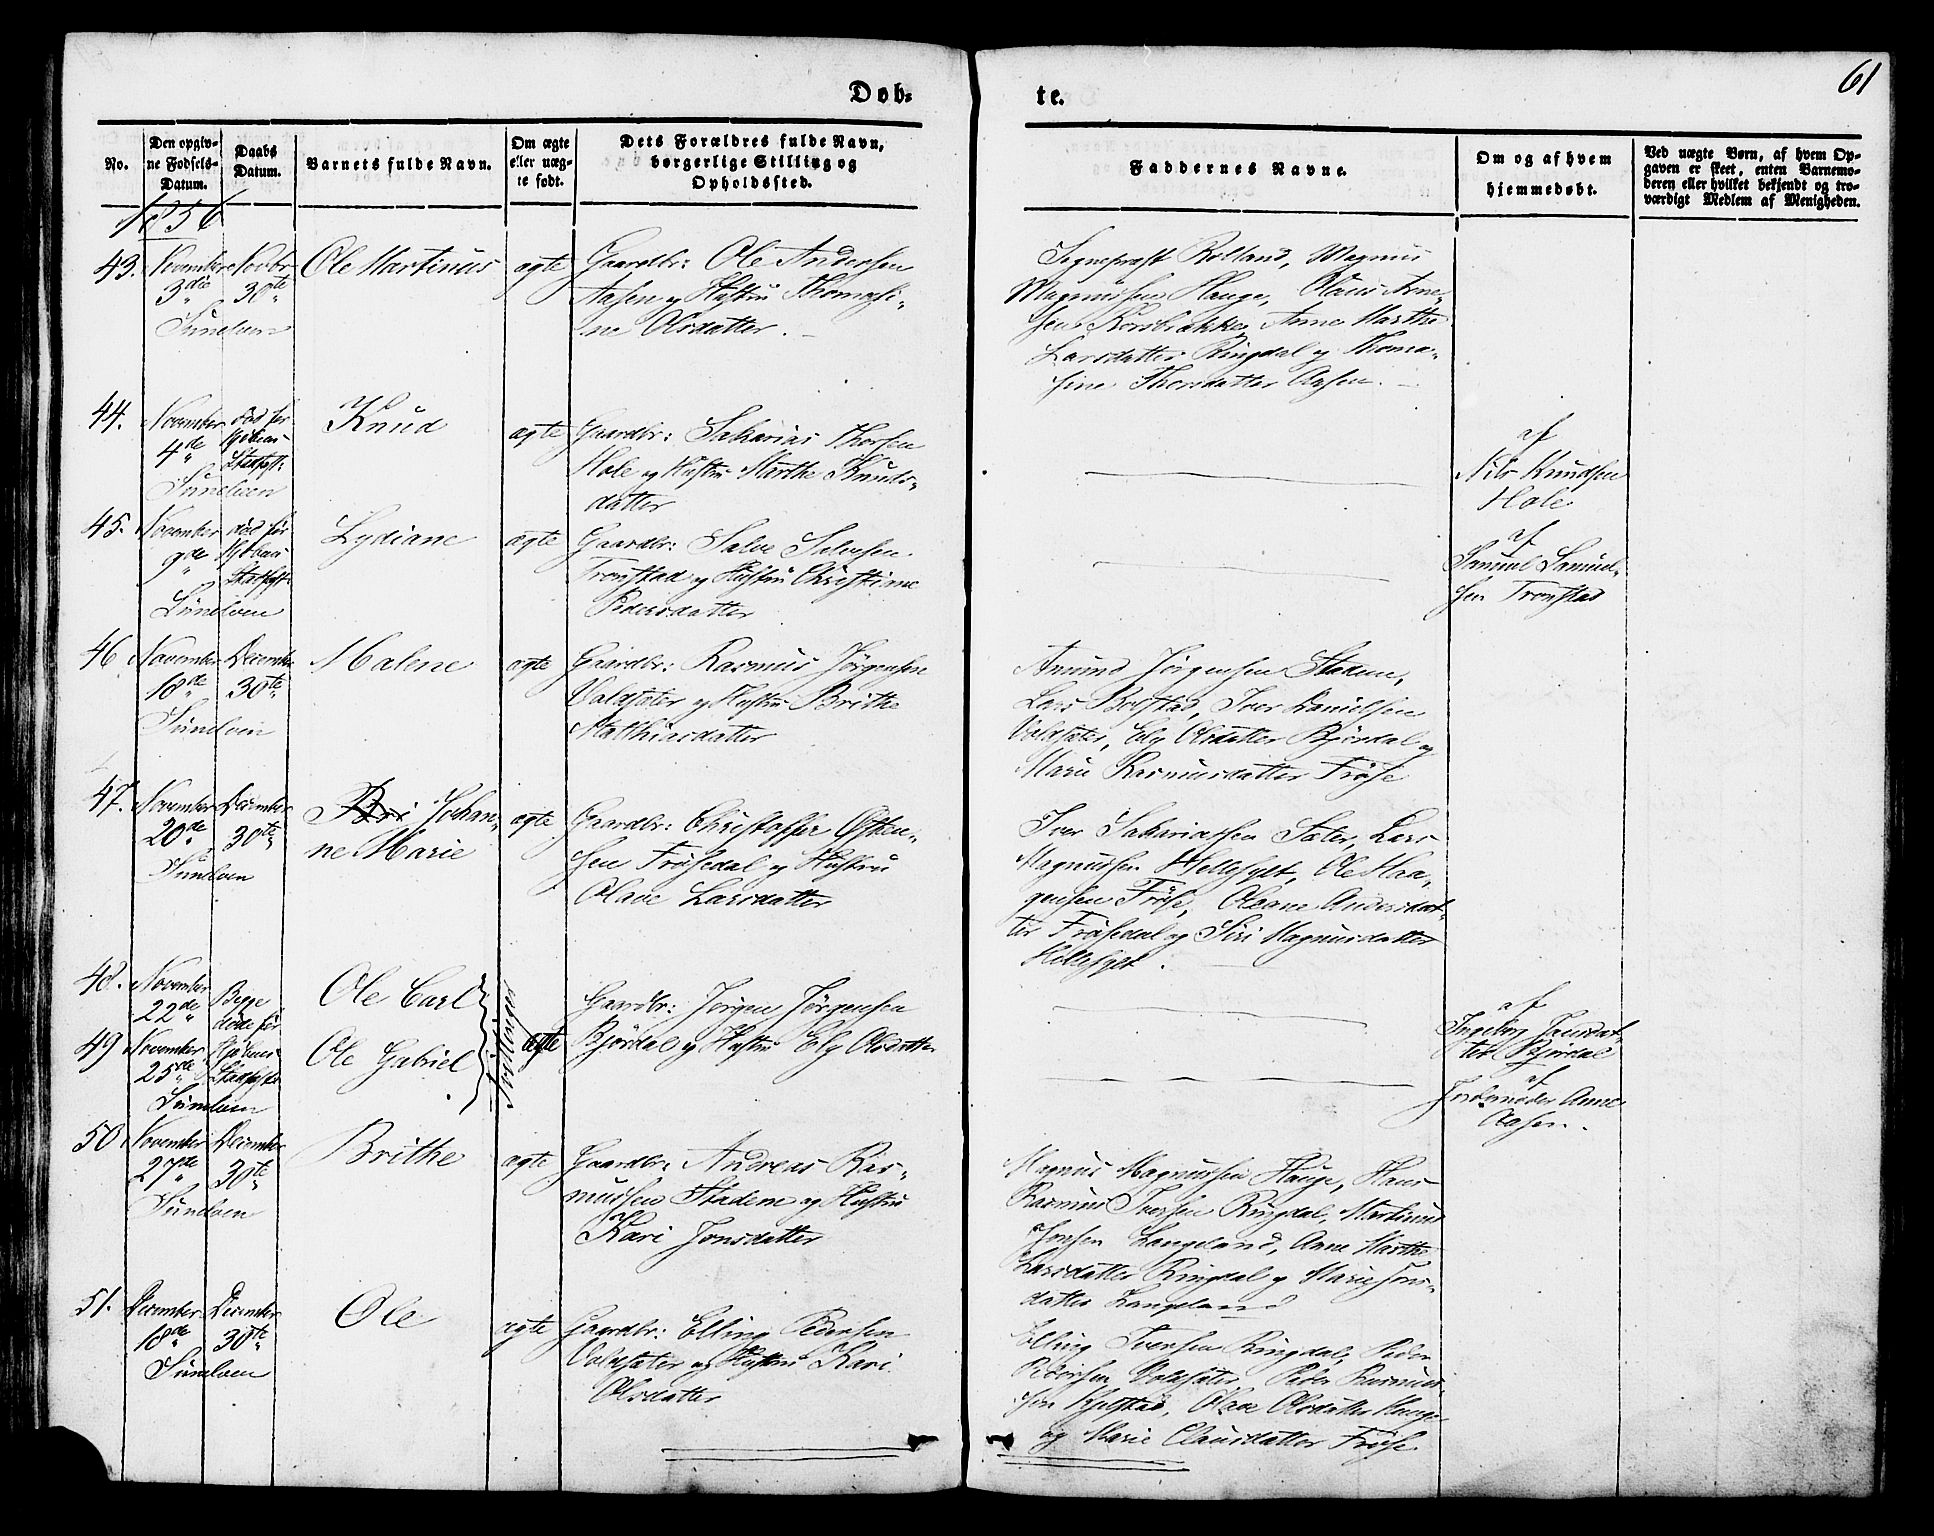 Døb-
te.
61
No.
Den opgiv-
ne Fødsels-
Datum.
Daabs
Datum.
Barnets fulde Navn.
Om ægte
eller uæg-
te født.
Dets Forældres fulde Navn,
borgerlige Stilling og
Opholdssted.
Faddernes Navne.
Om og af hvem
hjemmedøbt.
Ved uægte Børn, af hvem Op-
gaven er skeet, enten Barnemo-
deren eller hvilket bekjendt og tro-
værdigt Medlem af Menigheden.
1856
43.
November
3die
Sunelven
Novbr
30te
Ole Martinus
ægte
Gaardbr: Ole Andersen
Aasen og Hustru Thomasi-
ne Olsdatter.
Sognepræst Rolland, Magnus
Magnussen Hauge, Olaus Arne-
sen Korsbrække, Anne Marthe
Larsdatter Ringdal og Thoma-
sine Thorsdatter Aasen.
44.
November
4de
Sunelven
død før
Daabens
Stadfest:
Knud
ægte
Gaardbr: Sakarias Thorsen
Hole og Hustru Marthe Knuds-
datter
af
Nils Knudsen
Hole
45.
November
9de
Sunelven
død før
Stadfest:
Lydiane
ægte
Gaardbr: Salve Salvesen
Tronstad og Hustru Christinne
Pedersdatter
af
Samuel Samuel-
sen Tronstad
46
November
18de
Sunelven
December
30te
Malene
ægte
Gaardbr: Rasmus Jørgensen
Voldsæter og Hustru Brithe
Matthiasdatter
Amund Jørgensen Stadene,
Lars Bolstad, Iver Danielsen
Voldsæter, Ely Olsdatter Bjørdal og
Marie Rasmusdatter Frøse
47.
November
20de
Sunelven
December
30te
Bri Johan-
ne Marie
ægte
Gaardbr: Christoffer Østen-
sen Frøsedal og Hustru
Olave Larsdatter
Iver Sakariassen Sæter, Lars
Magnussen Hellesylt, Ole Haa-
gensen Frøse, Oleane Andersdat-
ter Frøsedal og Siri Magnusdatter
Hellesylt.
48.
November
22de
Begge
døde før
Ole Carl
Tvillinger
Gaardbr: Jørgen Jørgensen
af
Ingeborg
49
November
25de
Sunelven
Stadfest:
Ole Gabriel
ægte
Bjørdal og Hustru Ely Olsdatter
Bjørdal
af
Jordemoder Anne
Aasen.
50.
November
27de
Sunelven
December
30te
Brithe
ægte
Gaardbr: Andreas Ras-
mussen Stadene og Hustru
Kari Jonsdatter
Magnus Magnussen Hauge, Hans
Rasmus Iversen Ringdal, Martinus
Jonsen Langeland, Anne Marthe
Larsdatter Ringdal og Marie Jons-
datter Langeland
51.
December
18de
Sunelven
December
30te
Ole
ægte
Gaardbr: Elling Pedersen
Voldsæter og Hustru Kari
Olsdatter
Elling Iversen Ringdal, Peder
Pedersen Voldsæter, Peder Rasmus-
sen Kjelstad, Olave Olsdatter Hauge
og Marie Clausdatter Frøse